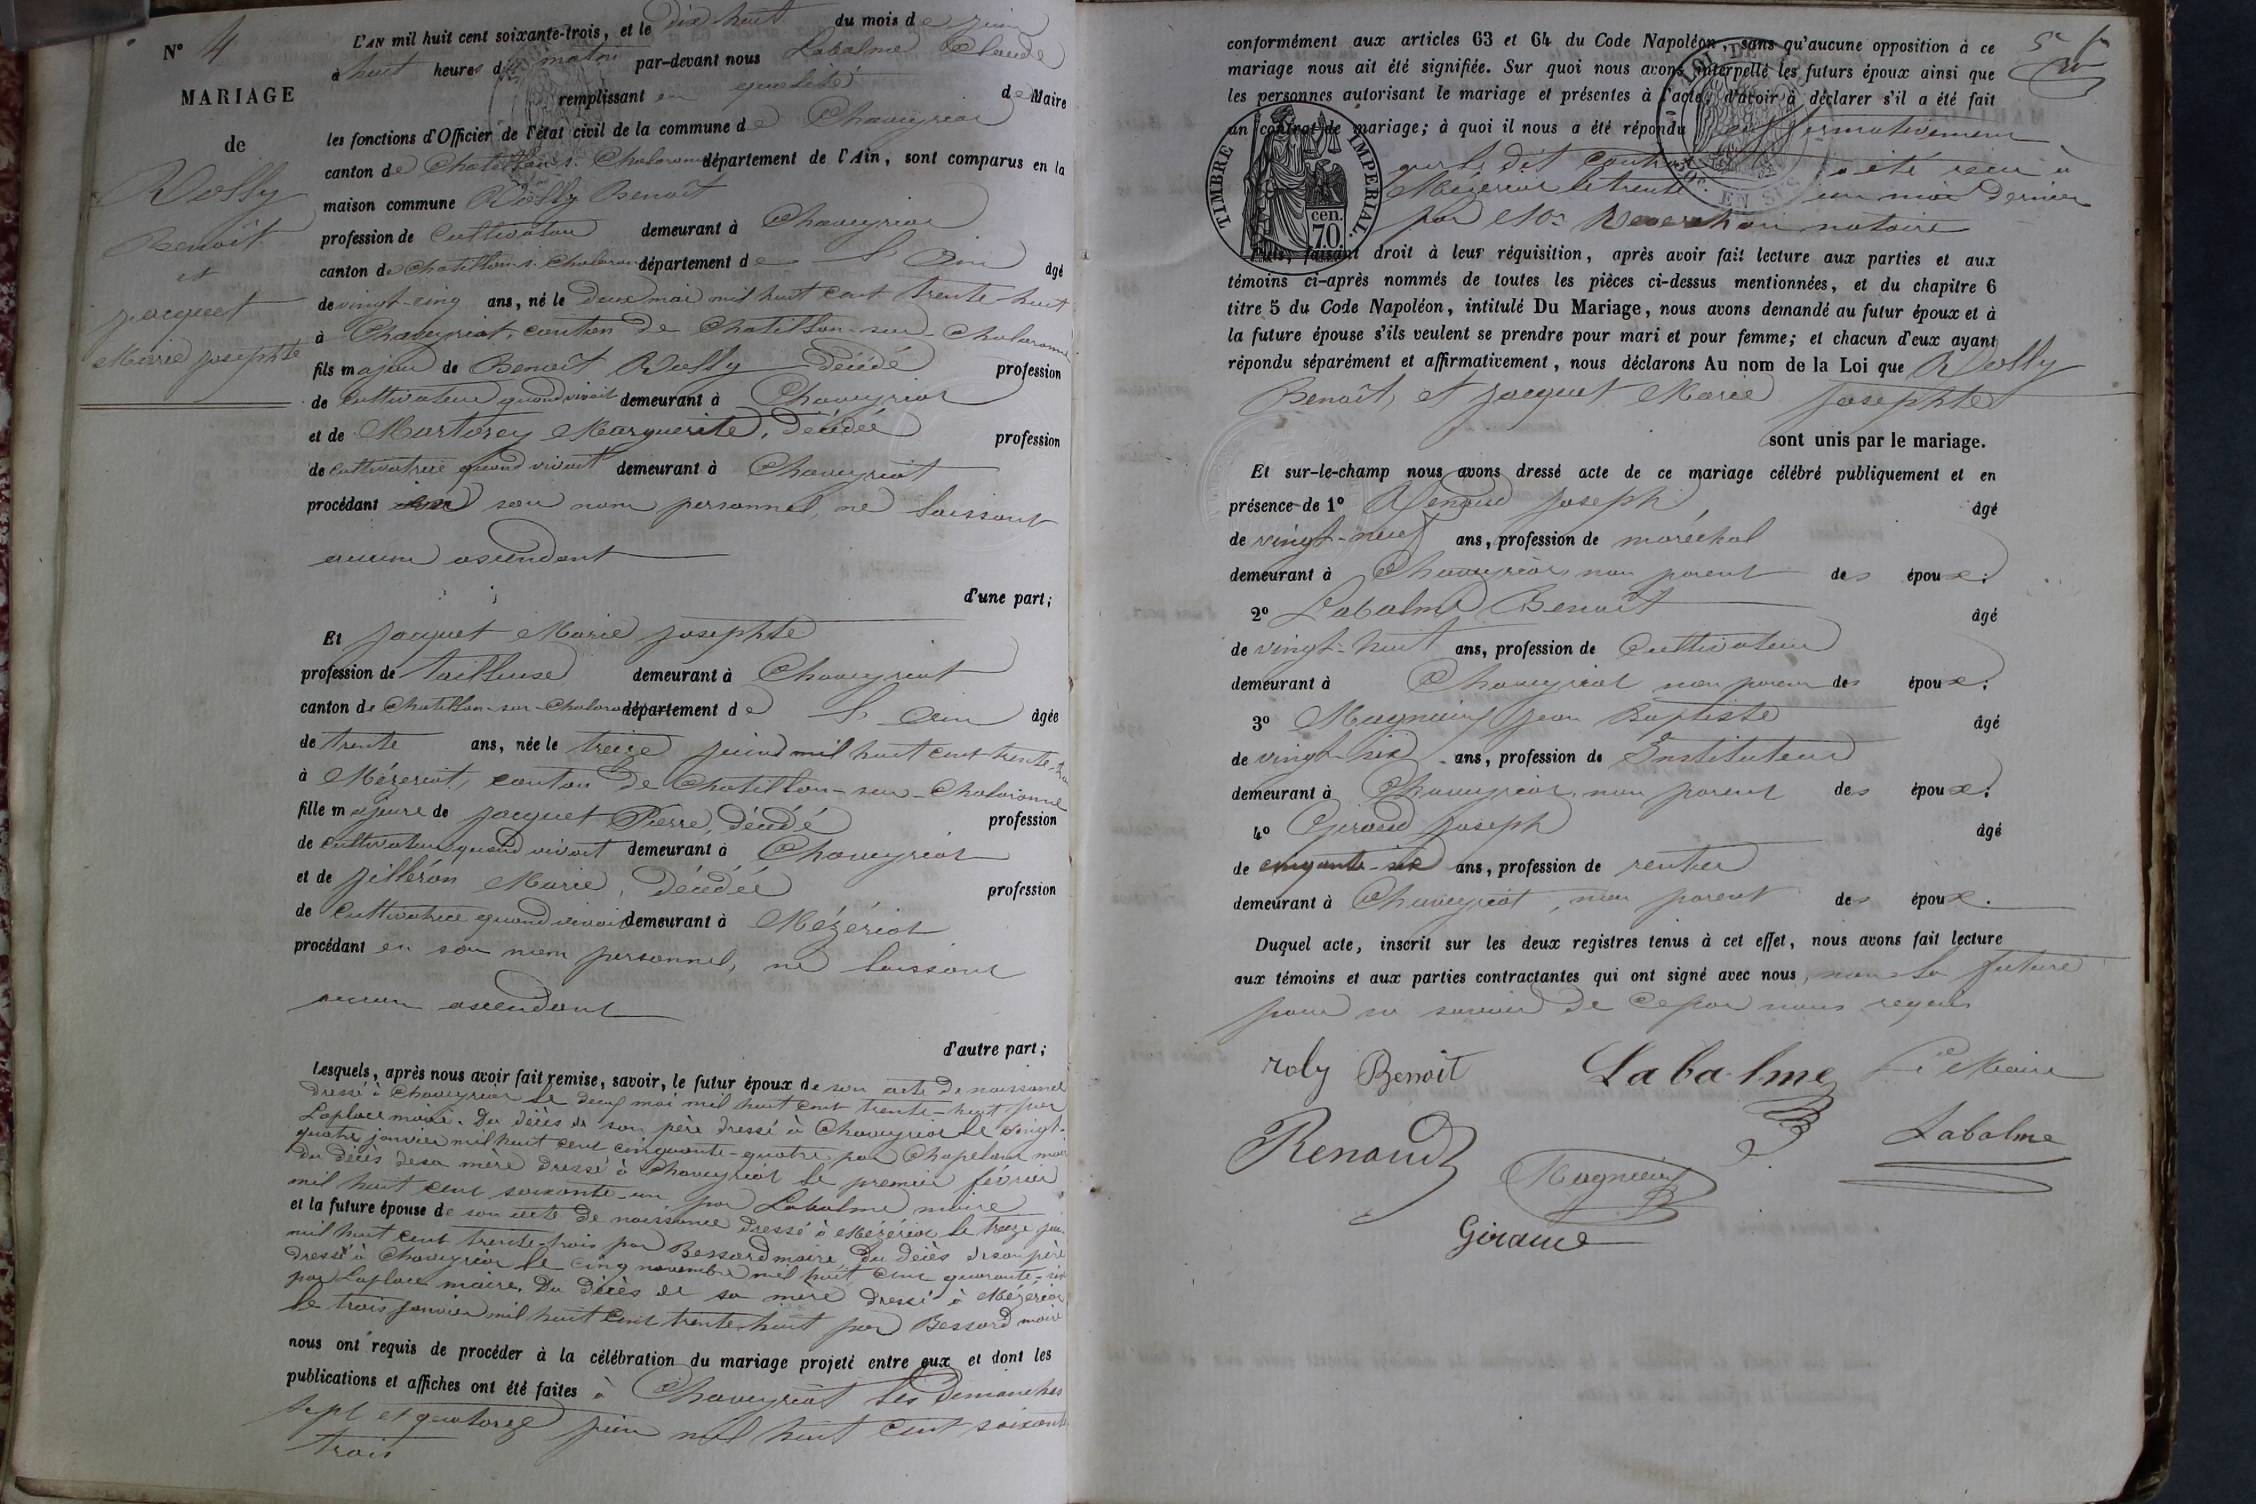 N° 4
MARIAGE
de
Rolly
Benoît
et
Jacquet
Marie Josephte
L'AN mil huit cent soixante-trois, et le dix huit du mois de juin
à huit heures du matin par-devant nous Labalme Claude
remplissant en qualité de Maire
les fonctions d'Officier de l'état civil de la commune de Chaveyriat
canton de Chatillon s. Chalaronne département de l'Ain, sont comparus en la
maison commune Rolly Benoît
profession de Cultivateur demeurant à Chaveyriat
canton de Chatillon s. Chalaronne département de L'Ain âgé
de vingt-cinq ans, né le deux mai mil huit cent trente-huit
à Chaveyriat, canton de Chatillon-sur-Chalaronne
fils majeur de Benoît Rolly décédé profession
de Cultivateur quand vivait demeurant à Chaveyriat
et de Martorey Marguerite, décédée profession
de cultivatrice quand vivait demeurant à Chaveyriat
procédant en son nom personnel, ne laissant
aucun ascendant
d'une part;
Et Jacquet Marie Josephte
profession de tailleuse demeurant à Chaveyriat
canton de Chatillon-sur-Chalaronne département de L'Ain âgée
de trente ans, née le treize juin mil huit cent trente-trois
à Mézériat, canton de Chatillon-sur-Chalaronne
fille majeure de Jacquet Pierre, décédé profession
de cultivateur quand vivait demeurant à Chaveyriat
et de Pilléron Marie, Décédée profession
de Cultivatrice quand vivait demeurant à Mézériat
procédant en son nom personnel, ne laissant
aucun ascendant
d'autre part;
Lesquels, après nous avoir fait remise, savoir, le futur époux de son acte de naissance
dressé à Chaveyriat le deux mai mil huit cent trente-huit par
Laplace maire. Du décès de son père dressé à Chaveyriat le vingt-
quatre janvier mil huit cent cinquante-quatre par Chapeland maire
du décès de sa mère dressé à Chaveyriat le premier février
mil huit cent soixante-un par Labalme maire
et la future épouse de son acte de naissance dressé à Mézériat le treize juin
mil huit cent trente-trois par Bessard maire, Du décès de son père
dressé à Chaveyriat le cinq novembre mil huit cent quarante-six
par Laplace maire, Du décès de sa mère dressé à Mézériat
le trois janvier mil huit cent trente-huit par Bessard maire
nous ont requis de procéder à la célébration du mariage projeté entre eux et dont les
publications et affiches ont été faites à Chaveyriat les Dimanches
sept et quatorze juin mil huit cent soixante
trois
conformément aux articles 63 et 64 du Code Napoléon, sans qu'aucune opposition à ce
mariage nous ait été signifiée. Sur quoi nous avons interpellé les futurs époux ainsi que
les personnes autorisant le mariage et présentes à l'acte, d'avoir à déclarer s'il a été fait
un contrat de mariage; à quoi il nous a été répondu affirmativement
que le dit contrat a été reçu à
Mézériat le trente un mai dernier
par Me Reverchon notaire
TIMBRE IMPERIAL.
cen.
70.
EN SUS
Puis, faisant droit à leur réquisition, après avoir fait lecture aux parties et aux
témoins ci-après nommés de toutes les pièces ci-dessus mentionnées, et du chapitre 6
titre 5 du Code Napoléon, intitulé Du Mariage, nous avons demandé au futur époux et à
la future épouse s'ils veulent se prendre pour mari et pour femme; et chacun d'eux ayant
répondu séparément et affirmativement, nous déclarons Au nom de la Loi que Rolly
Benoît, et Jacquet Marie Josephte
sont unis par le mariage.
Et sur-le-champ nous avons dressé acte de ce mariage célébré publiquement et en
présence de 1° Renaud Joseph, âgé
de vingt-neuf ans, profession de maréchal
demeurant à Chaveyriat, non parent des époux;
2° Labalme Benoît âgé
de vingt-huit ans, profession de Cultivateur
demeurant à Chaveyriat non parent des époux;
3° Magnieny Jean Baptiste âgé
de vingt-six ans, profession de Instituteur
demeurant à Chaveyriat, non parent des époux;
4° Giraud Joseph âgé
de cinquante-six ans, profession de rentier
demeurant à Chaveyriat, non parent des époux.
Duquel acte, inscrit sur les deux registres tenus à cet effet, nous avons fait lecture
aux témoins et aux parties contractantes qui ont signé avec nous, non la future
pour ne savoir de ce par nous requis
roly Benoit Labalme Le Maire
Renaud Magnieny Labalme
Giraud